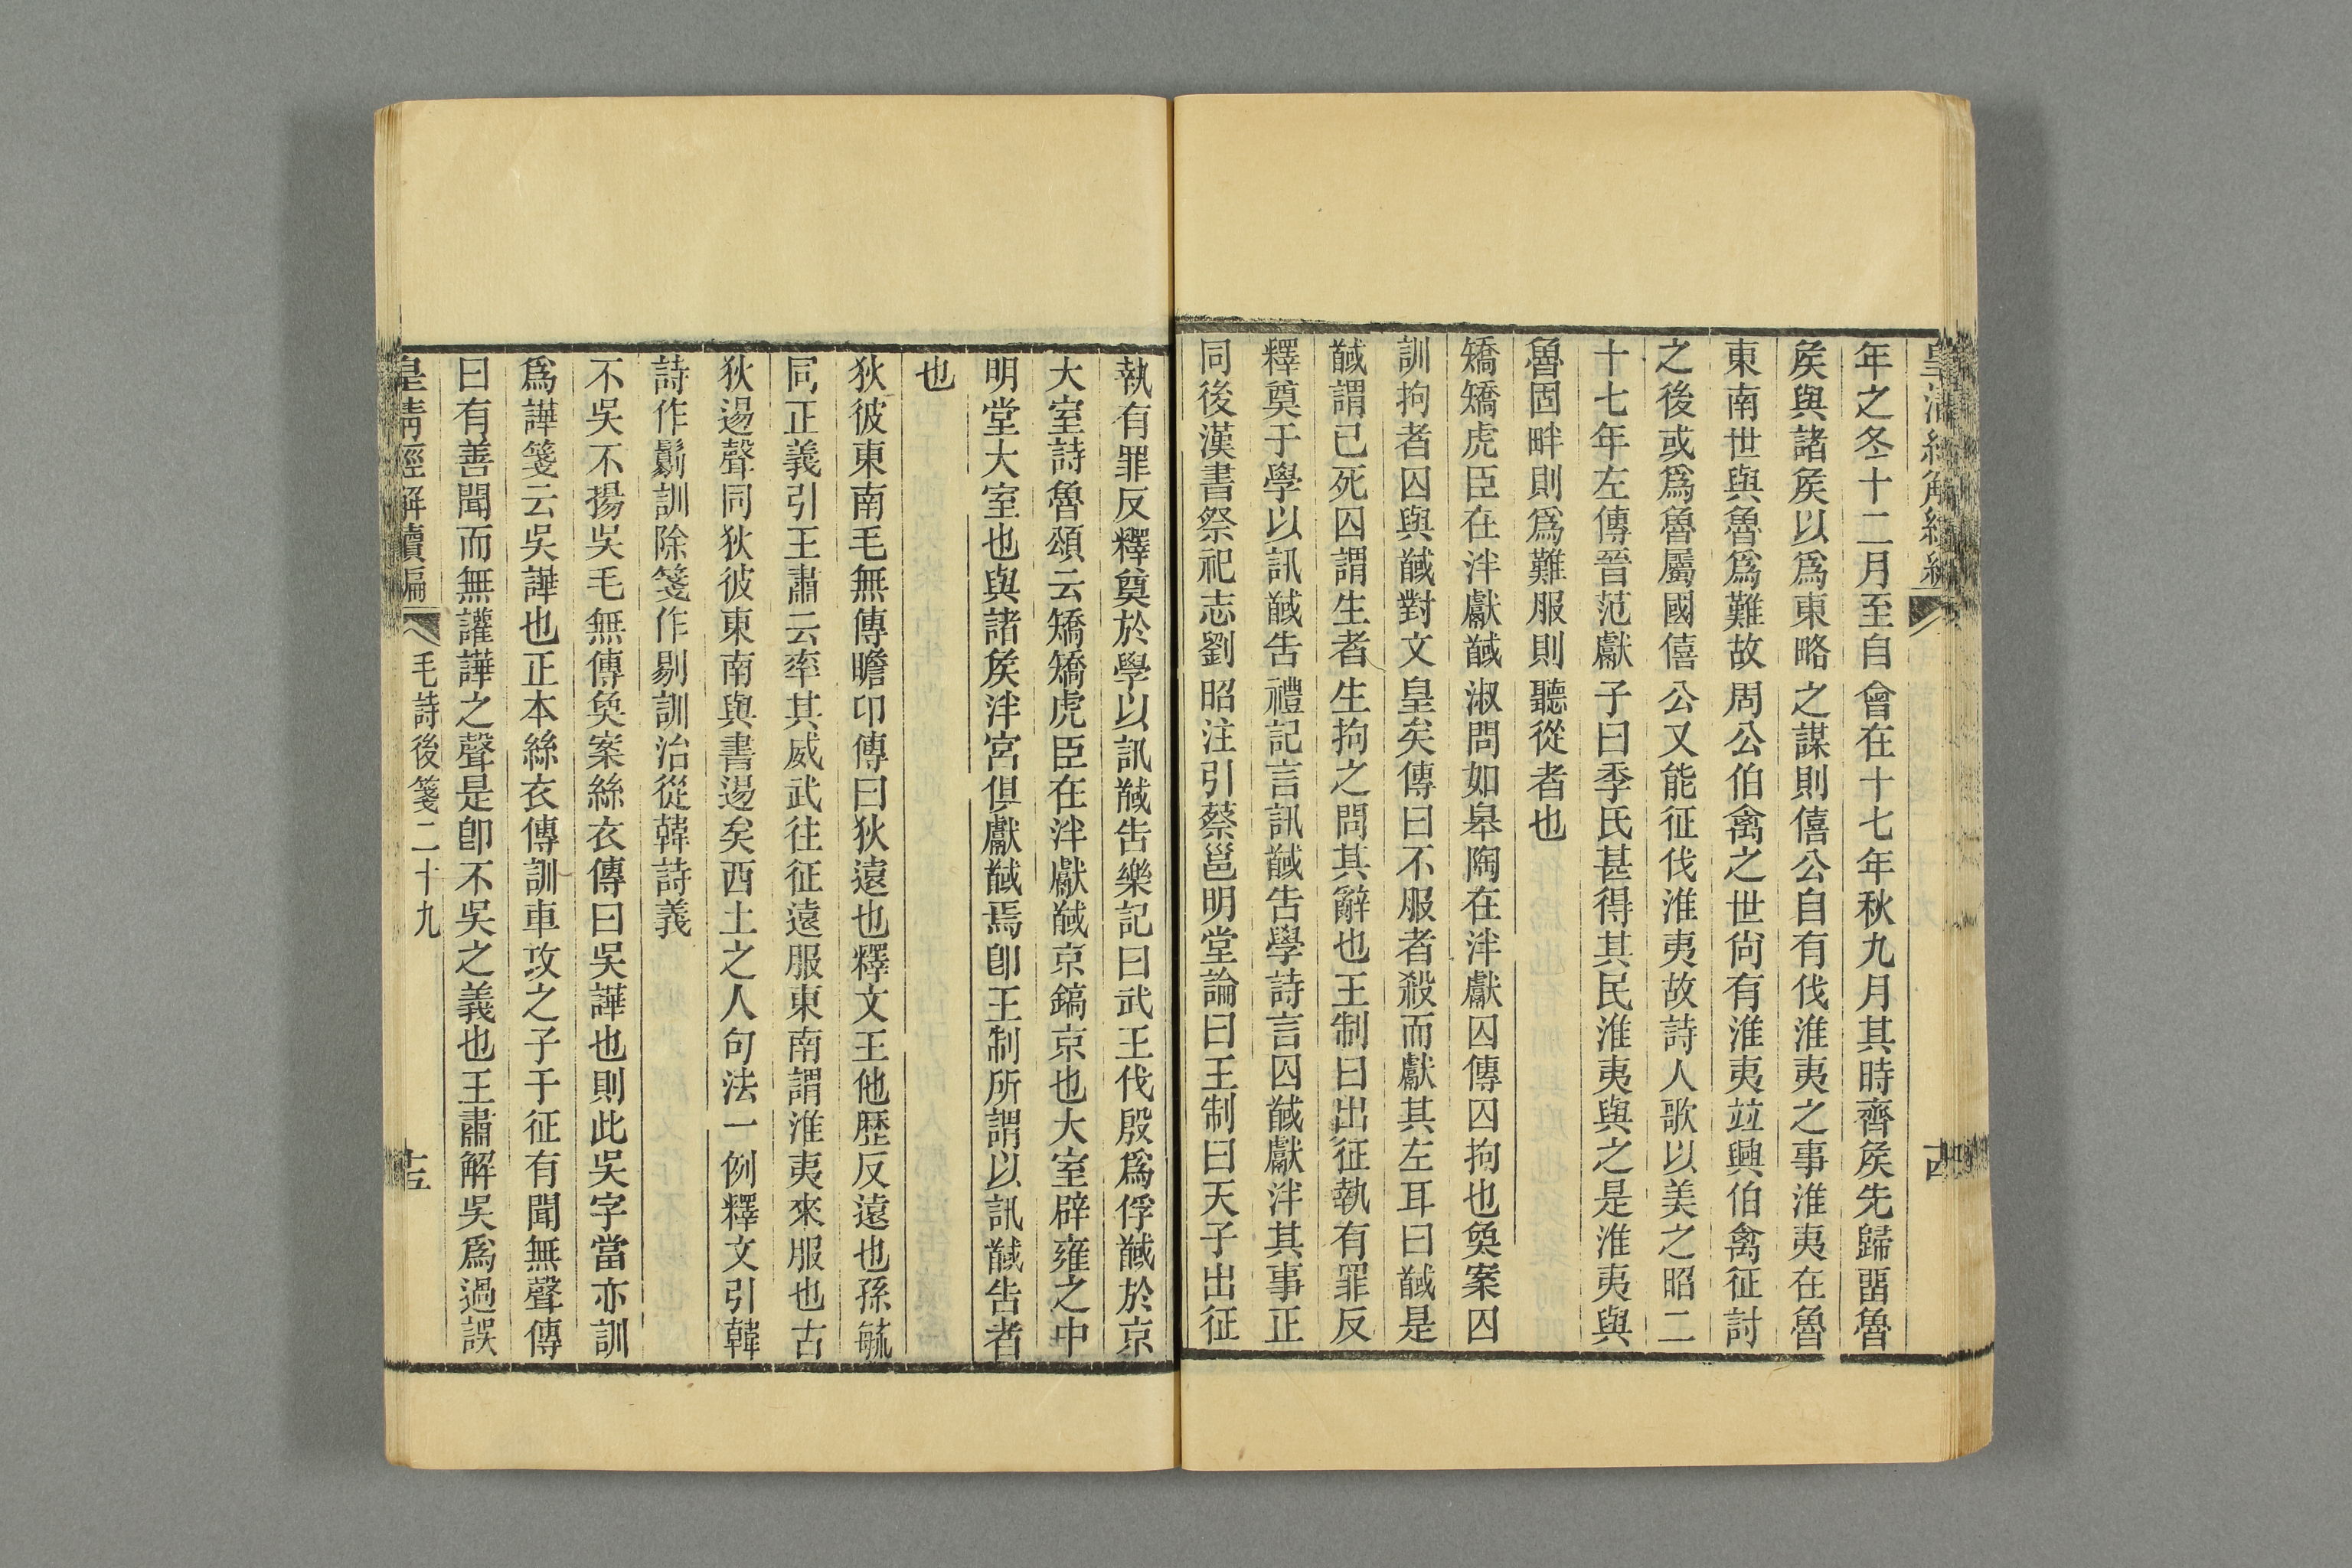 年之冬十二月至自會在十七年秋九月其時齊矦先歸畱魯
矦與諸矦以爲東略之謀則僖公自有伐淮夷之事淮夷在魯
東南世與魯爲難故周公伯禽之世尙有淮夷竝興伯禽征討
之後或爲魯屬國僖公又能征伐淮夷故詩人歌以美之昭二
十七年左傳晉范獻子曰季氏甚得其民淮夷與之是淮夷與
魯固畔則爲難服則聽從者也
矯矯虎臣在泮獻馘淑問如皋陶在泮獻囚傳囚拘也奐案囚
訓拘者囚與馘對文皇矣傳曰不服者殺而獻其左耳曰馘是
馘謂已死囚謂生者生拘之問其辭也王制曰出征執有罪反
釋奠于學以訊馘告禮記言訊馘告學詩言囚馘獻泮其事正
同後漢書祭祀志劉昭注引蔡邕明堂論曰王制曰天子出征
執有罪反釋奠於學以訊馘告樂記曰武王伐殷爲俘馘於京
大室詩魯頌云矯矯虎臣在泮獻馘京鎬京也大室辟雍之中
明堂大室也與諸矦泮宮俱獻馘焉卽王制所謂以訊馘告者
也
狄彼東南毛無傳瞻卬傳曰狄遠也釋文王他歷反遠也孫毓
同正義引王肅云率其威武往征遠服東南謂淮夷來服也古
狄逷聲同狄彼東南與書逷矣西土之人句法一例釋文引韓
詩作鬄訓除箋作剔訓治從韓詩義
不吳不揚吳毛無傳奐案絲衣傳曰吳譁也則此吳字當亦訓
爲譁箋云吳譁也正本絲衣傳訓車攻之子于征有聞無聲傳
曰有善聞而無讙譁之聲是卽不吳之義也王肅解吳爲過誤
皇淸經解續編
毛詩後箋二十九
十五